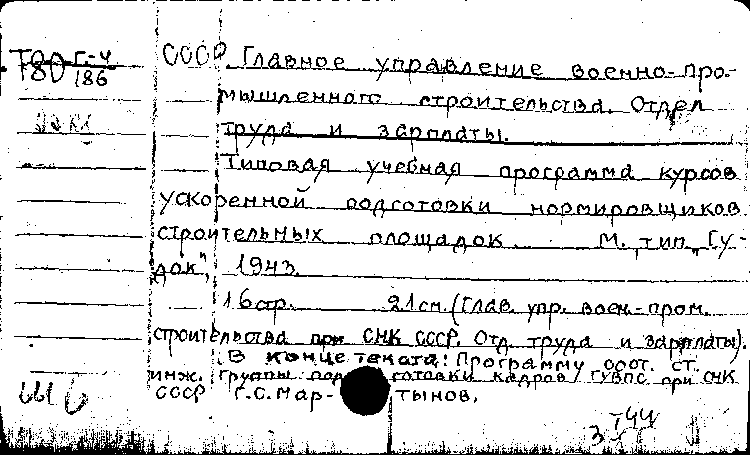 Т80 г-4/186
СССР. Главное управление военно-про-
мышленного строительства. Отдел
труда и зарплаты.
Типовая учебная программа курсов
ускоренной подготовки нормировщиков
строительных площадок. М., тип. "Гу-
док", 1943.
16 стр. 21 см. (Глав. упр. воен.-пром.
строительства при СНК СССР. Отд. труда и зарплаты).
В конце текста: Программу сост. ст.
инж. группы подготовки кадров ГУВПС при СНК
СССР Г.С. Мар-тынов.